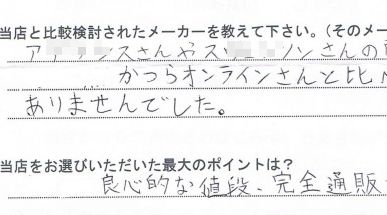 当店と比較検討されたメーカーを教えて下さい。(そのメー
さんやス ソンさんの
かつらオンラインさんと比
ありませんでした。
当店をお選びいただいた最大のポイントは？
良心的な値段、完全通販